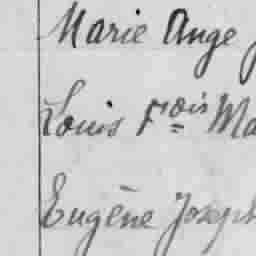 Marie Ange
Louis Fçois Ma
Eugène Joseph